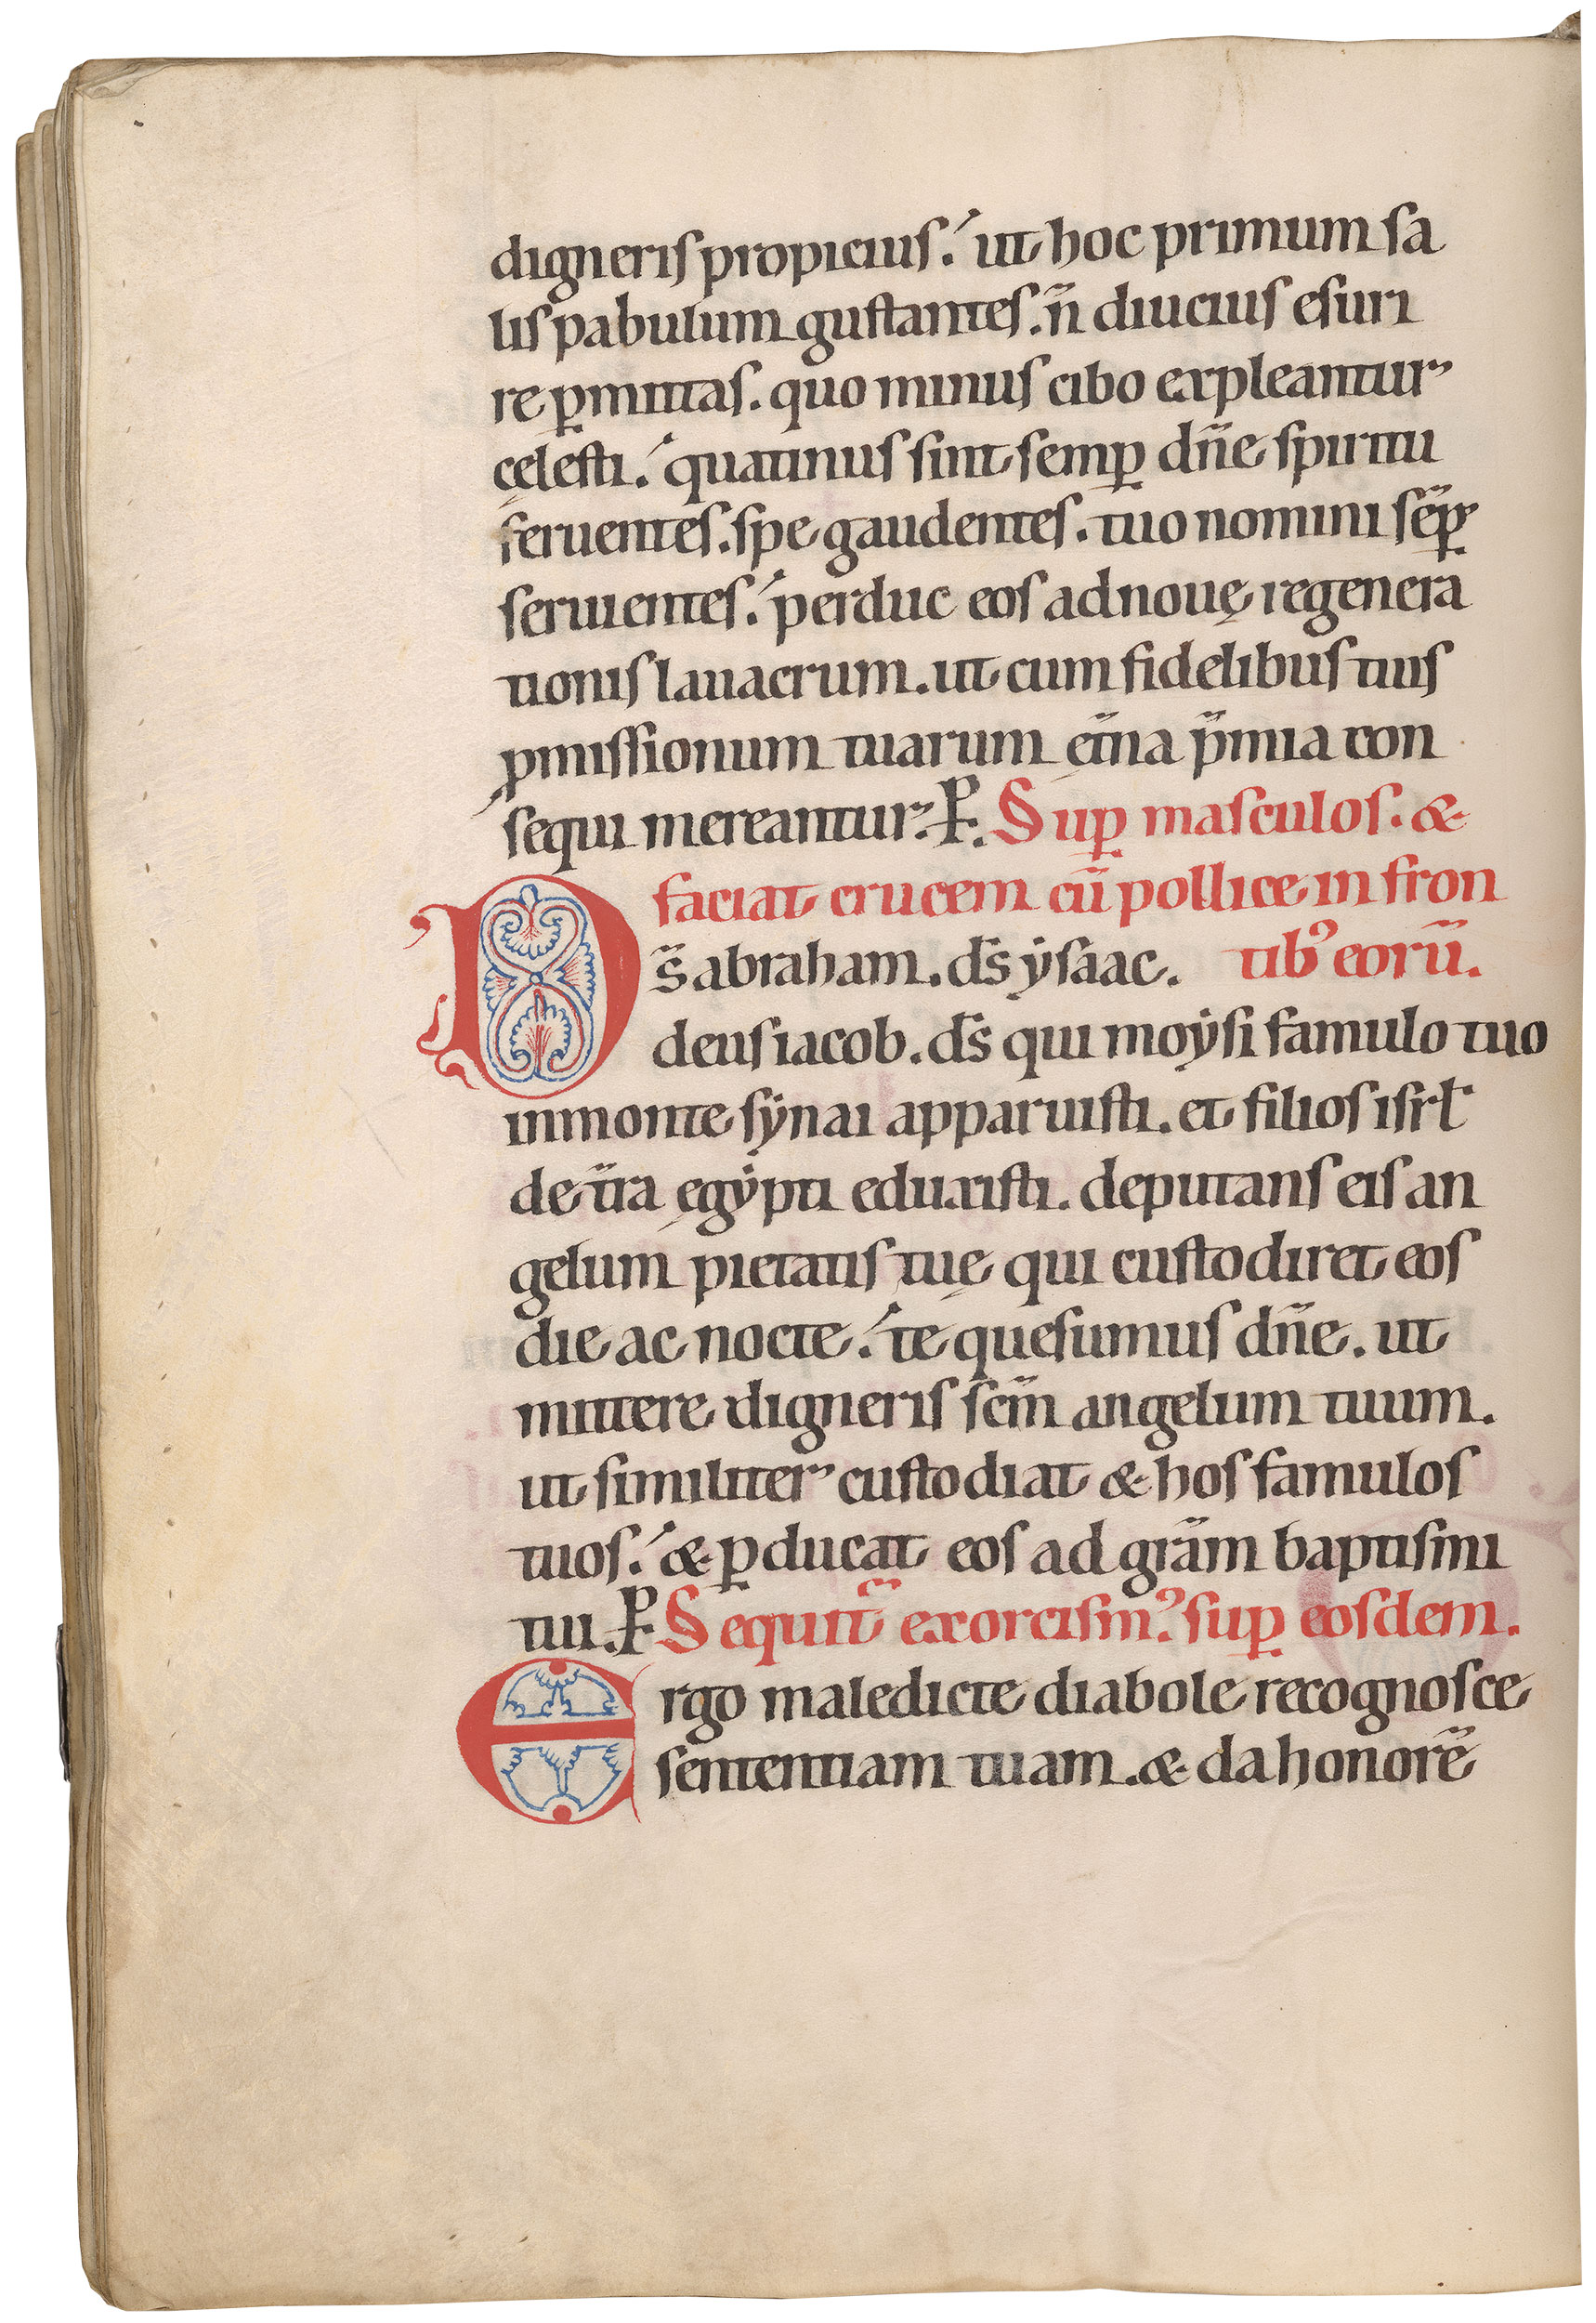 digneris propicius. ut hoc primum sa
lis pabulum gustantes. ñ diucius esuri
re ꝑmittas. quo minus cibo expleantur
cęlesti. quatinus sint semꝑ dñe spiritu
feruentes. spe gaudentes. tuo nomini sēꝑ
seruientes. perduc eos ad nouę regenera
tionis lauacrum. ut cum fidelibus tuis
ꝓmissionum tuarum ęt̄na p̄mia con
sequi mereantur. P̱. Suꝑ masculos. &
faciat crucem cū pollice in fron
D s̄ abraham. ds̄ ẏsaac. tibꝰ eorū.
deus iacob. ds̄ qui moẏsi famulo tuo
in monte sẏnai apparuisti. et filios isrł
de t̄ra ęgẏpti eduxisti. deputans eis an
gelum pietatis tuę qui custodiret eos
die ac nocte. te quesumus dñe. ut
mittere digneris sc̄m angelum tuum.
ut similiter custodiat & hos famulos
tuos. & ꝑducat eos ad grām baptismi
tui. P̱ Sequit̄ exorcismꝰ. suꝑ eosdem.
Ergo maledicte diabole recognosce
sententiam tuam. & da honorē